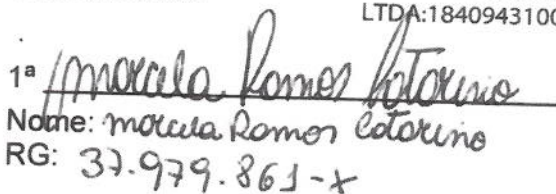 LTDA:1840943100
1ª Marcela Ramos Catarino
Nome: Marcela Ramos Catarino
RG: 37.979.861-X